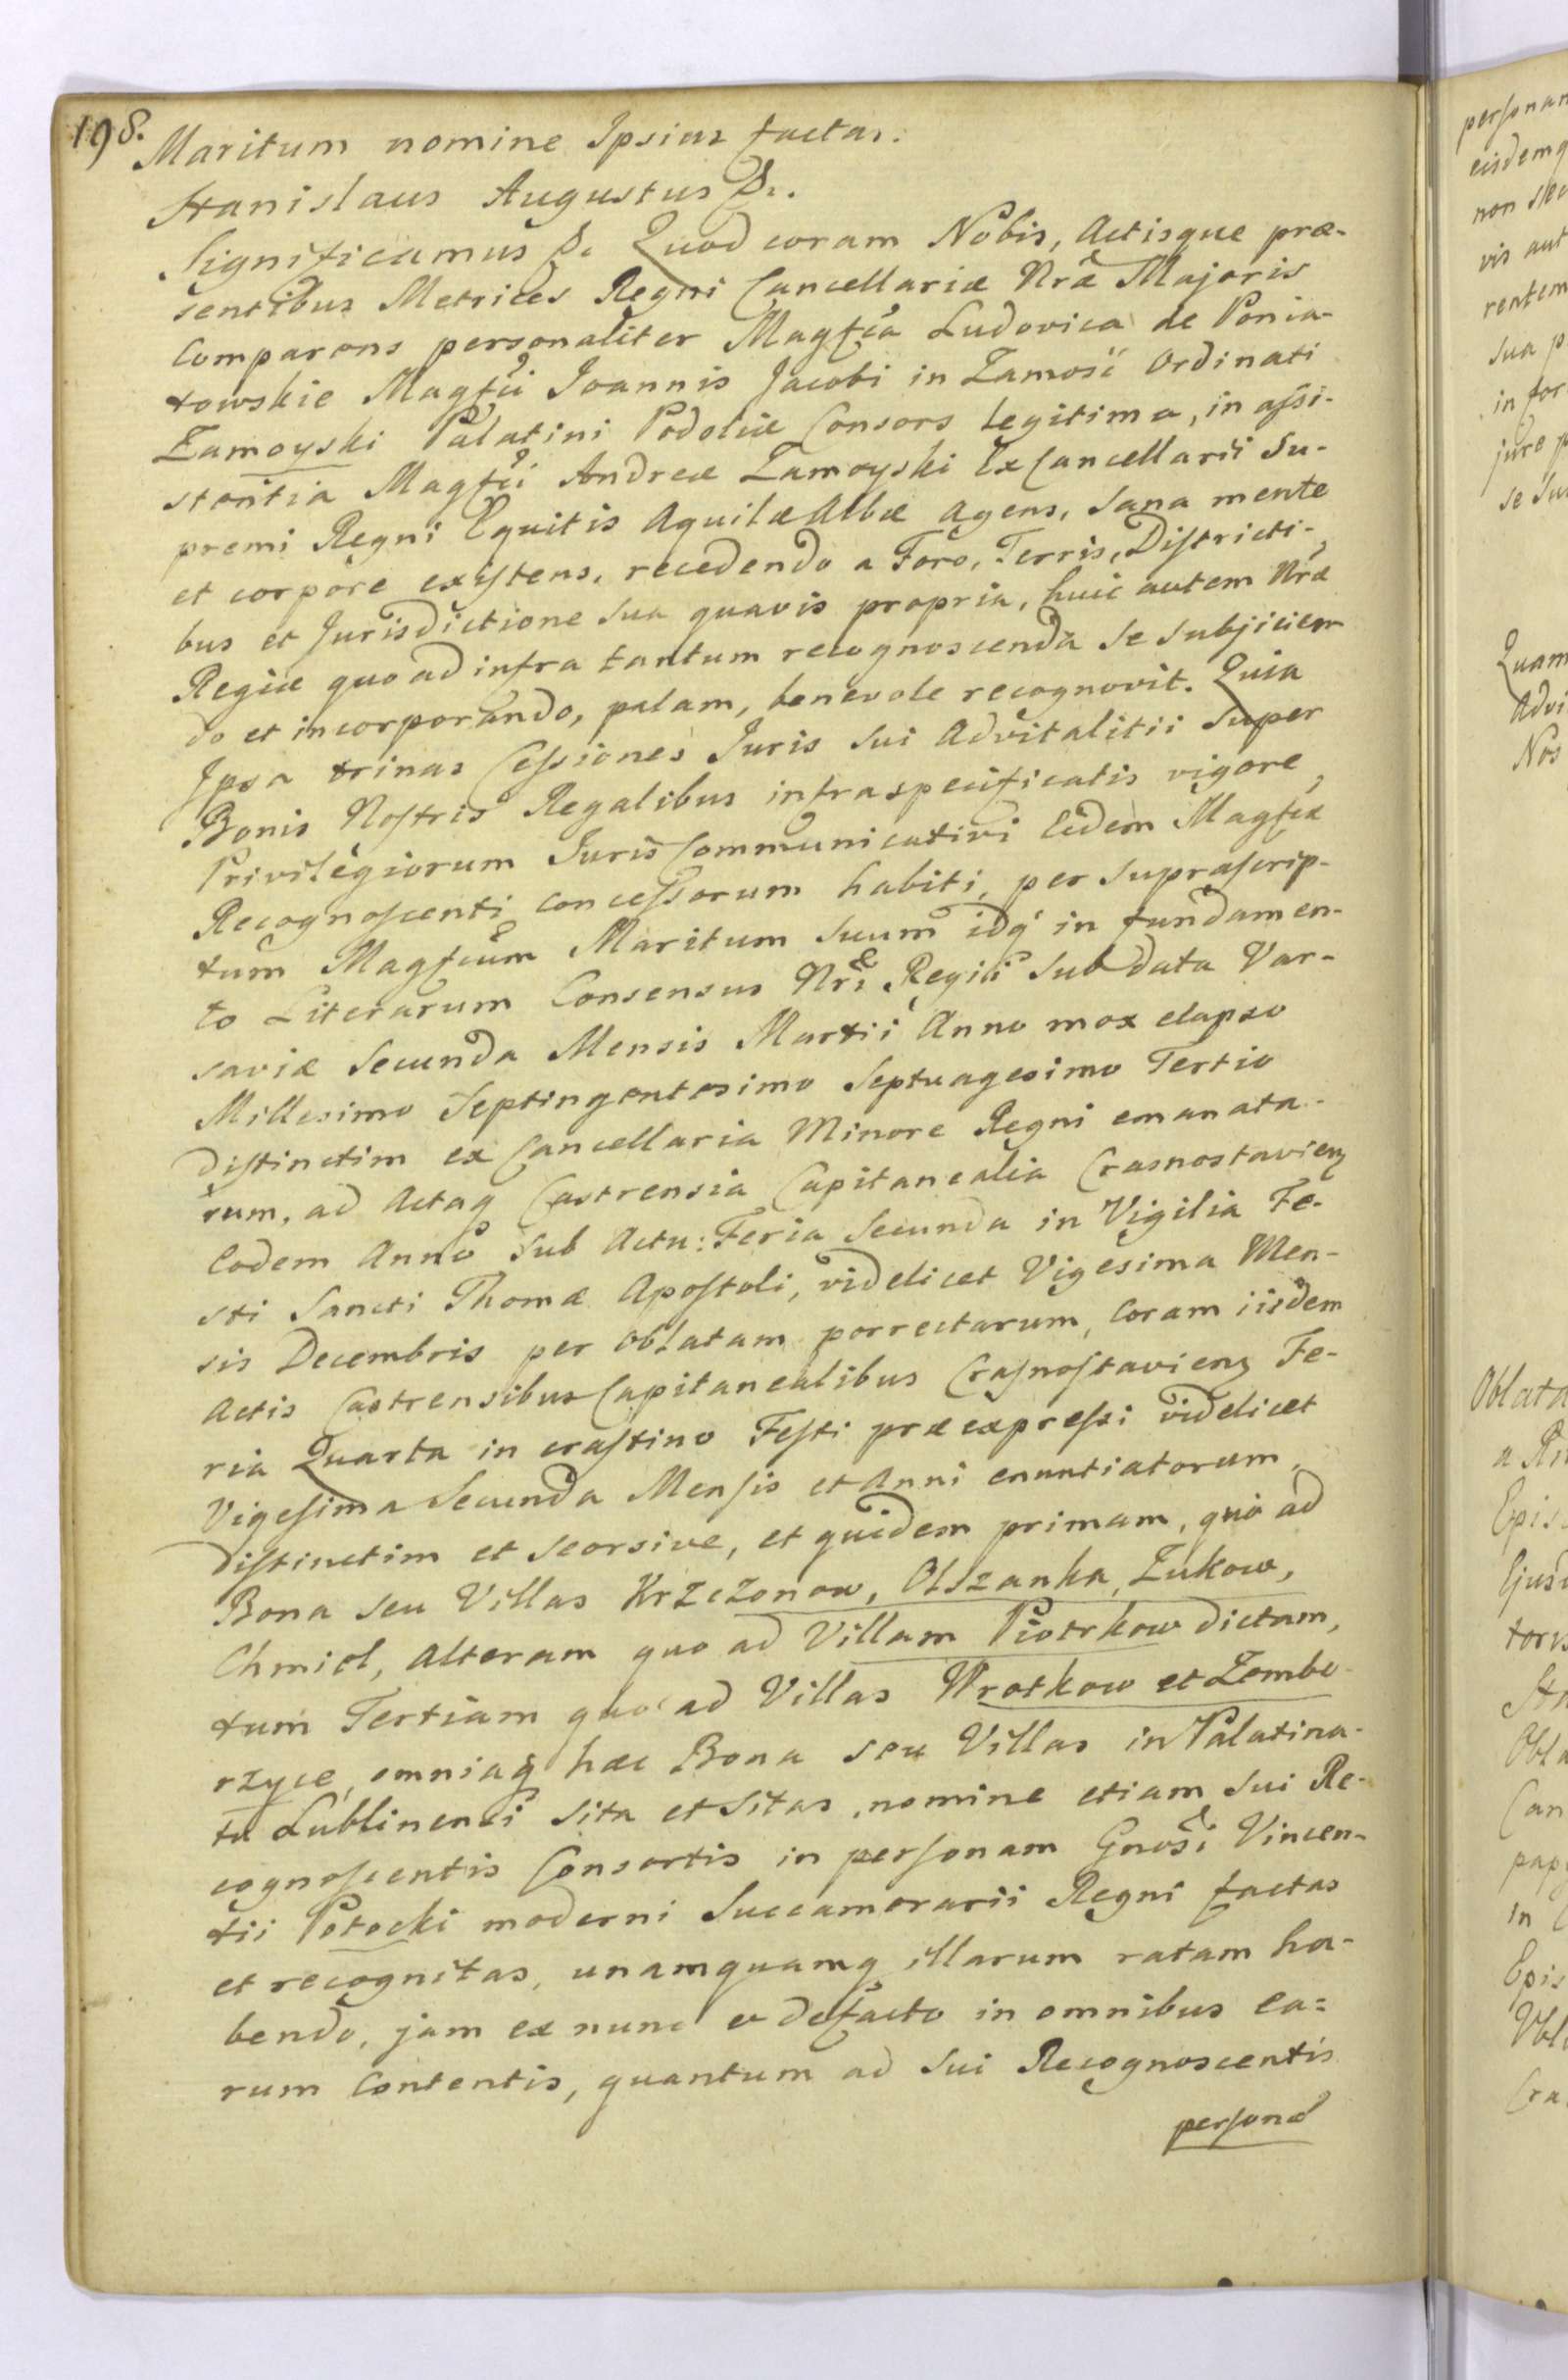 198.
Maritum nomine Ipsius factas.
Stanislaus Augustus &.
Significamus &. Quod coram Nobis, Actisque præ-
sentibus Metrices Regni Cancellariæ Nræ Majoris
Comparens personaliter Magfca Ludovica de Ponia-
towskie Magfci Joannis Jacobi in Zamość Ordinati
Zamoyski Palatini Podoliæ Consors legitima, in assi-
stentia Magfci Andreæ Zamoyski Ex Cancellarii Su-
premi Regni Equitis Aquilæ Albæ agens, sana mente
et corpore existens, recedendo a Foro, Terris, Districti-
bus et Jurisdictione sua quavis propria, huic autem Nræ
Regiæ quo ad infra tantum recognoscenda se subjicien
do et incorporando, palam, benevole recognovit. Quia
Ipsa trinas Cessiones Juris sui Advitalitii super
Bonis Nostris Regalibus infraspecificatis vigore
Privilegiorum Juris Communicativi Eidem Magfcæ
Recognoscenti concessorum habiti, per suprascrip-
tum Magfcum Maritum suum idq in fundamen-
to Literarum Consensus Nri Regii sub data Var-
saviæ Secunda Mensis Martii Anno mox elapso
Millesimo Septingentesimo Septuagesimo Tertio
distinctim ex Cancellaria Minore Regni emanata-
rum, ad Actaq Castrensia Capitanealia Crasnostaviens
Eodem Anno sub Actu: Feria Secunda in Vigilia Fe-
sti Sancti Thomæ Apostoli, videlicet Vigesima Men-
sis Decembris per oblatam porrectarum, Coram iisdem
Actis Castrensibus Capitanealibus Crasnostaviens Fe-
ria Quarta in crastino Festi præexpressi videlicet
Vigesima Secunda Mensis et Anni enuntiatorum,
distinctim et seorsive, et quidem primam, quo ad
Bona seu Villas Krzczonow, Olszanka, Zukow,
Chmiel, Alteram quo ad Villam Piotrkow dictam,
tum Tertiam quo ad Villas Wrotkow et Zembo-
rzyce, omniaq hæc Bona seu Villas in Palatina-
tu Lublinensi sita et sitas, nomine etiam sui Re-
cognoscentis Consortis in personam Gnosi Vincen-
tii Potocki moderni Succamerarii Regni factas
et recognitas, unamquamq illarum ratam ha-
bendo, jam ex nunc et defacto in omnibus ea-
rum Contentis, quantum ad sui Recognoscentis
personæ